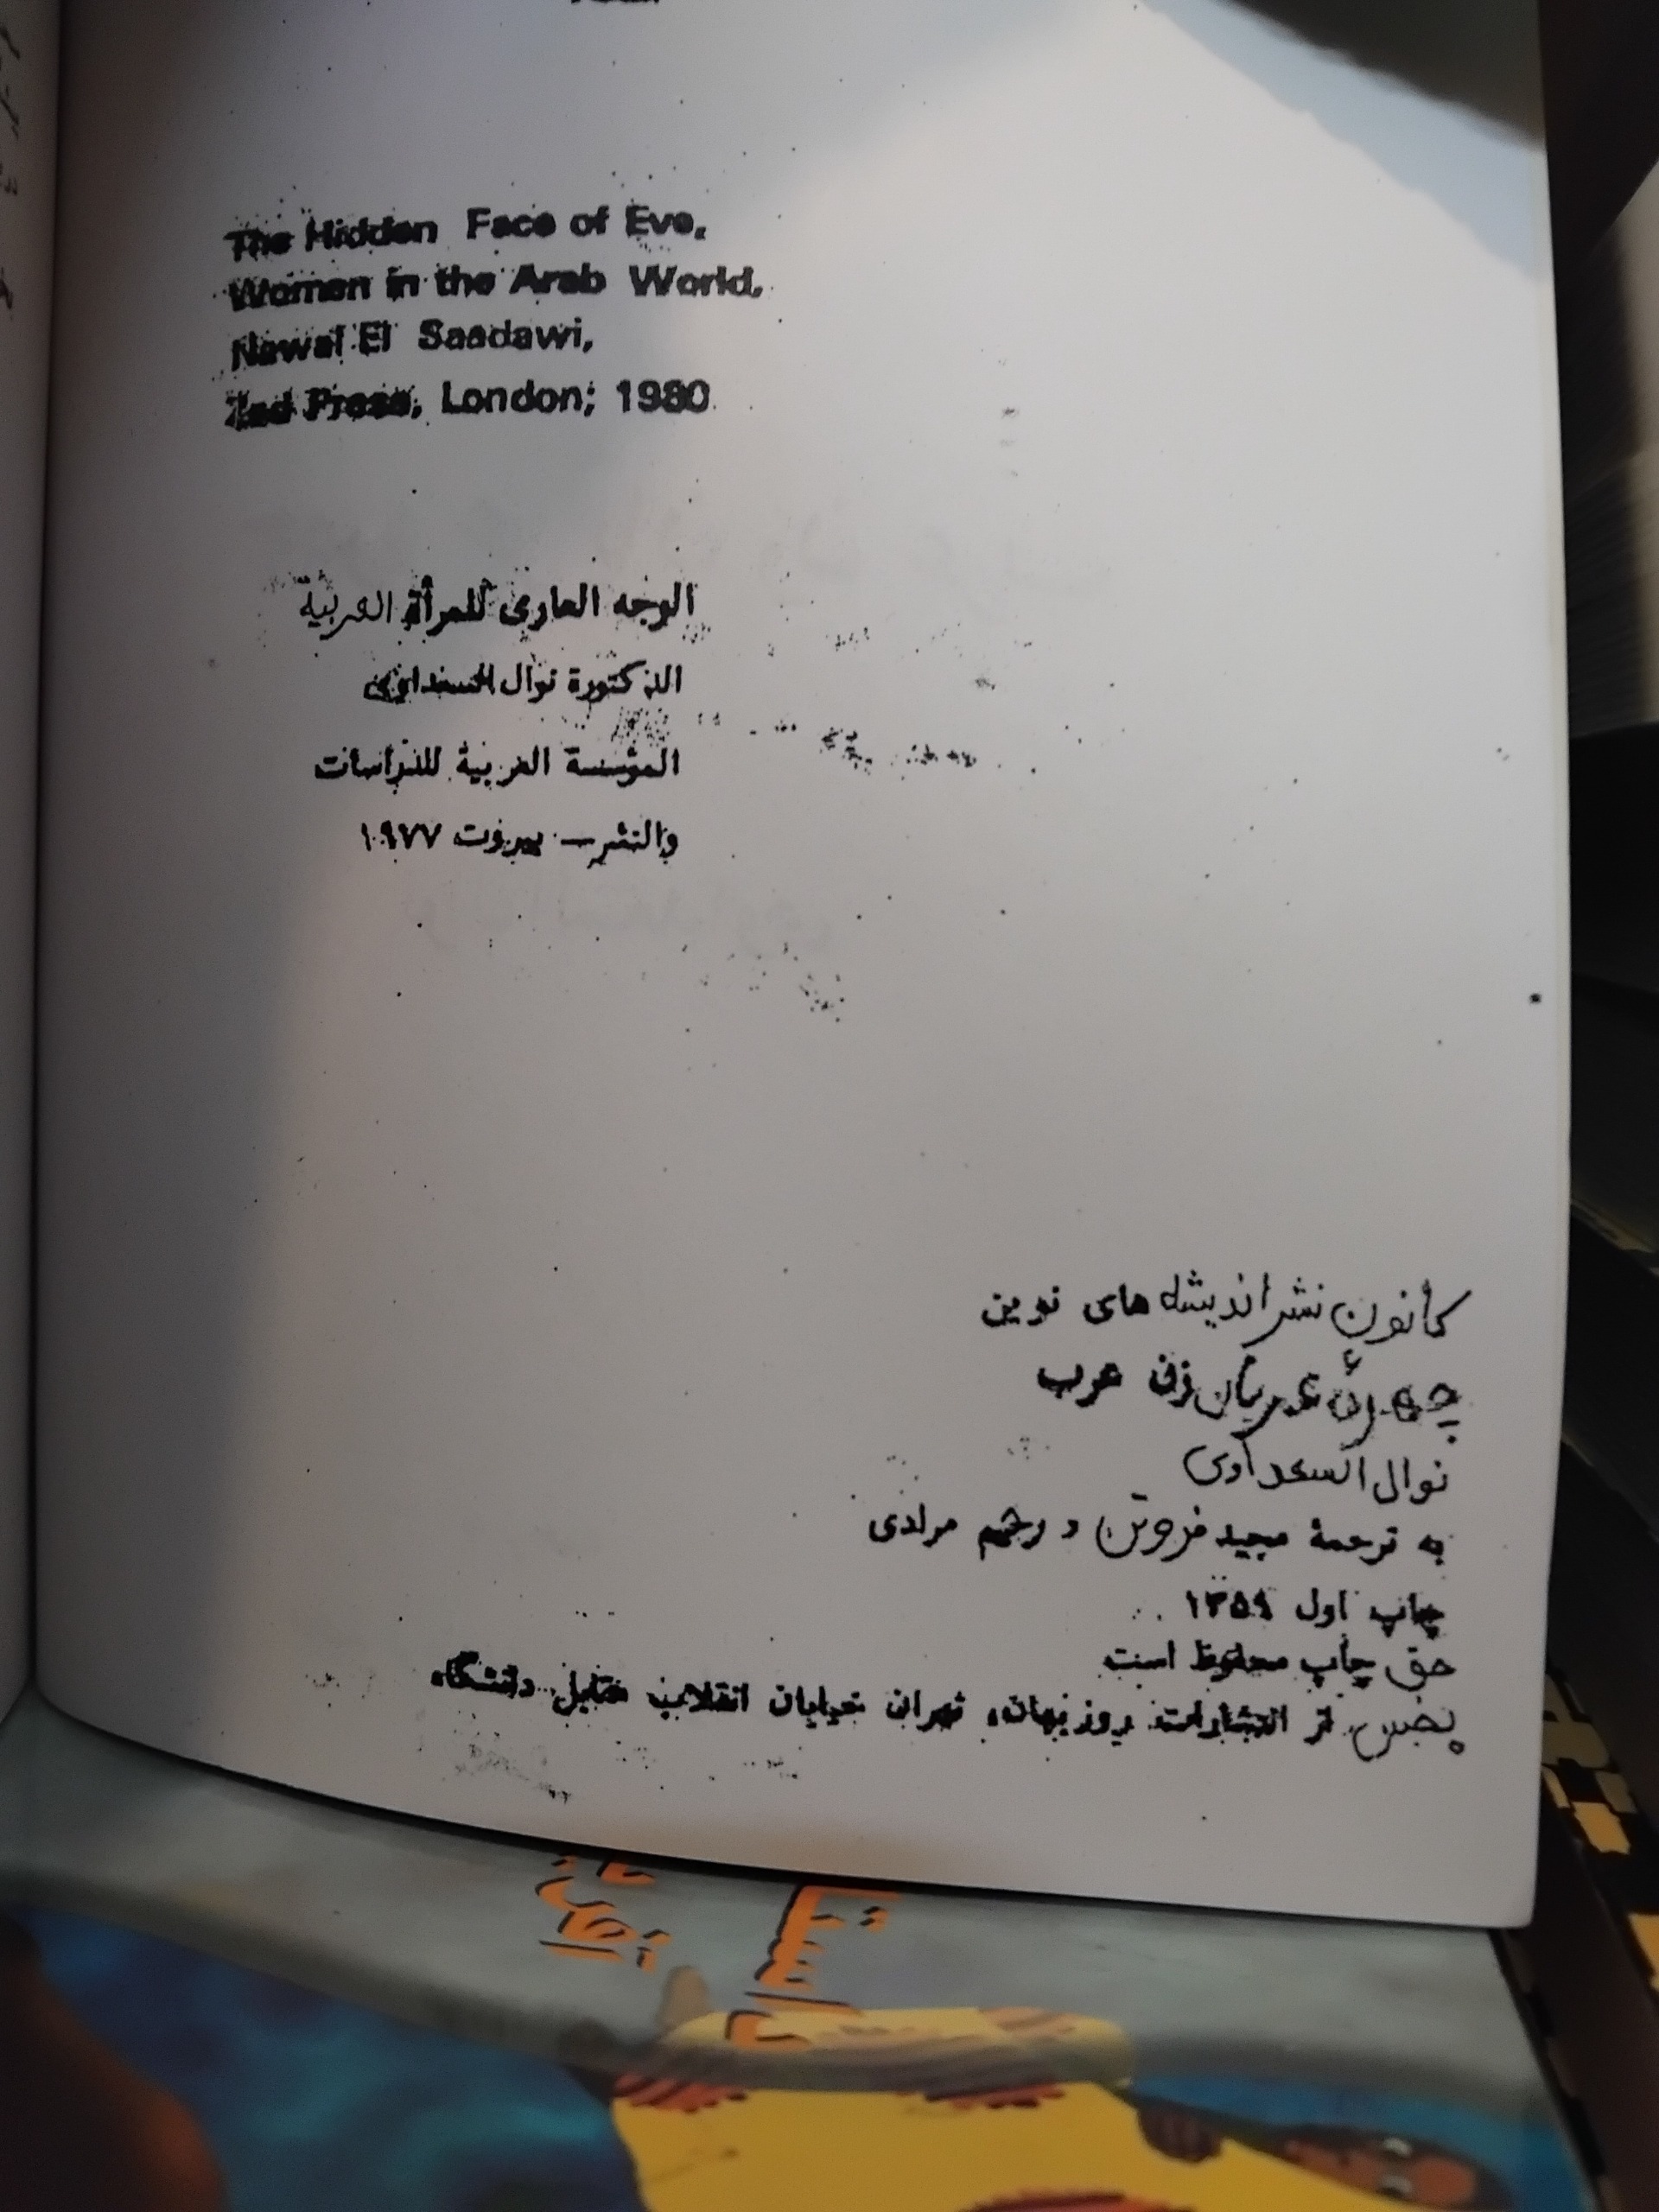 The Hidden Face of Eve,
Women in the Arab World,
Nawal El Saadawi,
Zed Press, London; 1980
الوجه العاری للمرأة العربية
الدكتورة نوال السعداوی
المؤسسة العربية للدراسات
والنشر — بيروت ١٩٧٧
کانون نشر اندیشه های نوین
چهرهٔ عریان زن عرب
نوال السعداوی
به ترجمهٔ مجید فروتن و رحیم مرادی
چاپ اول ۱۳۵۹
حق چاپ محفوظ است
پخش از انتشارات روزبهان، تهران خیابان انقلاب مقابل دانشگاه